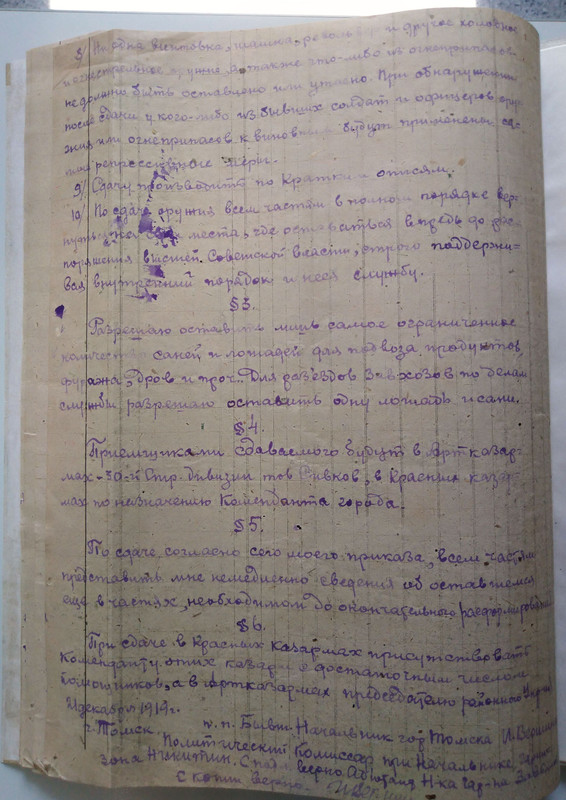 8/ Ни одна винтовка, шашка, револьвер и другое холодное
и огнестрельное оружие, а также что-либо из огнеприпасов
не должно быть оставлено или утаено. При обнаружении
после сдачи у кого-либо из бывших солдат и офицеров ору-
жия или огнеприпасов к виновным будут применены са-
мые репрессивные меры.
9/ Сдачу производить по кратким описям.
10/ По сдаче оружия всем частям в полном порядке вер-
нуться на свои места, где оставаться впредь до рас-
поряжения высшей Советской власти, строго поддержи-
вая внутренний порядок и неся службу.
§3.
Разрешаю оставить лишь самое ограниченное
количество саней и лошадей для подвоза продуктов,
фуража, дров и проч.. Для разездов Завхозов по делам
службы разрешаю оставить одну лошадь и сани.
§4.
Приемчиками сдаваемого будут в Арт казар-
мах - 30-й Стр. дивизии тов. в Красных казар-
мах по назначению Коменданта города.
§5.
По сдаче, согласно сего моего приказа, всем частям
представить мне немедленно сведения об оставшемся
еще в частях, необходимом до окончательного расформирования
§6.
При сдаче в Красных казармах присутствовать
Коменданту этих казарм с достаточным числом
помошников, а в артказармах председателю районного
21 декабря 1919 г.
г. Томск. п.п. Бывш. Начальник гор. Томска
Политический Комиссар при Начальнике
зона Никитин. верно: Адъютант Н-ка Гар-на
С копии верно: